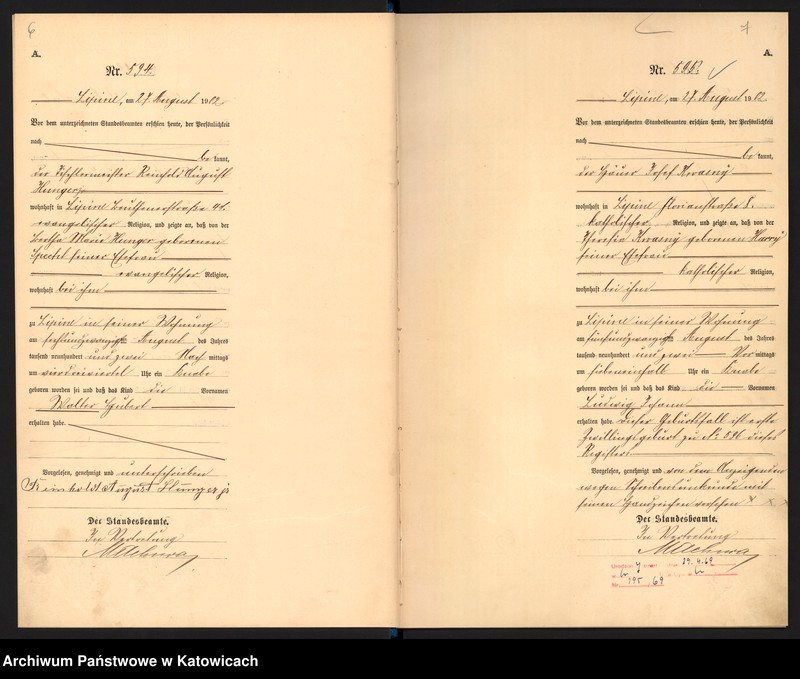 6
A.
Nr. 594.
Lipine, am 27. August 1902.
Vor dem unterzeichneten Standesbeamten erschien heute, der Persönlichkeit
nach
be kannt,
der Tischlermeister Reinhold August
Hunger
wohnhaft in Lipine
evangelischer Religion, und zeigte an, daß von der
Marie Hunger geborenen
seiner Ehefrau
evangelischer Religion,
wohnhaft bei ihm
zu Lipine in seiner Wohnung
am sechsundzwanzigsten August des Jahres
tausend neunhundert und zwei Nach mittags
um Uhr ein Knabe
geboren worden sei und daß das Kind die Vornamen
Walter Hubert
erhalten habe.
Vorgelesen, genehmigt und unterschrieben
Reinholdt August Hunger
Der Standesbeamte.
In Vertretung
7
A.
Nr. 595.
Lipine, am 27. August 1902.
Vor dem unterzeichneten Standesbeamten erschien heute, der Persönlichkeit
nach
be kannt,
der Häuer Josef Kwasny
wohnhaft in Lipine Florianstraße 8.
katholischer Religion, und zeigte an, daß von der
Kwasny geborenen
seiner Ehefrau
katholischer Religion,
wohnhaft bei ihm
zu Lipine in seiner Wohnung
am fünfundzwanzigsten August des Jahres
tausend neunhundert und zwei Vor mittags
um siebeneinhalb Uhr ein Knabe
geboren worden sei und daß das Kind die Vornamen
Ludwig Johann
erhalten habe. Dieser Geburtsfall ist erste
Zwillingsgeburt zu No. 596 dieses
Registers.
Vorgelesen, genehmigt und von dem Anzeigenden
wegen Schreibensunkunde mit
seinem Handzeichen versehen
Der Standesbeamte.
In Vertretung
29.4.69
195 69
Archiwum Państwowe w Katowicach